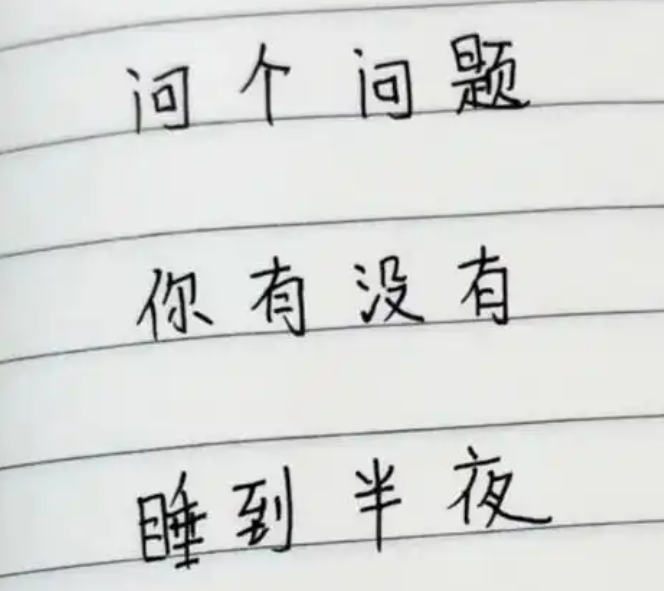 问个问题
你有没有
睡到半夜